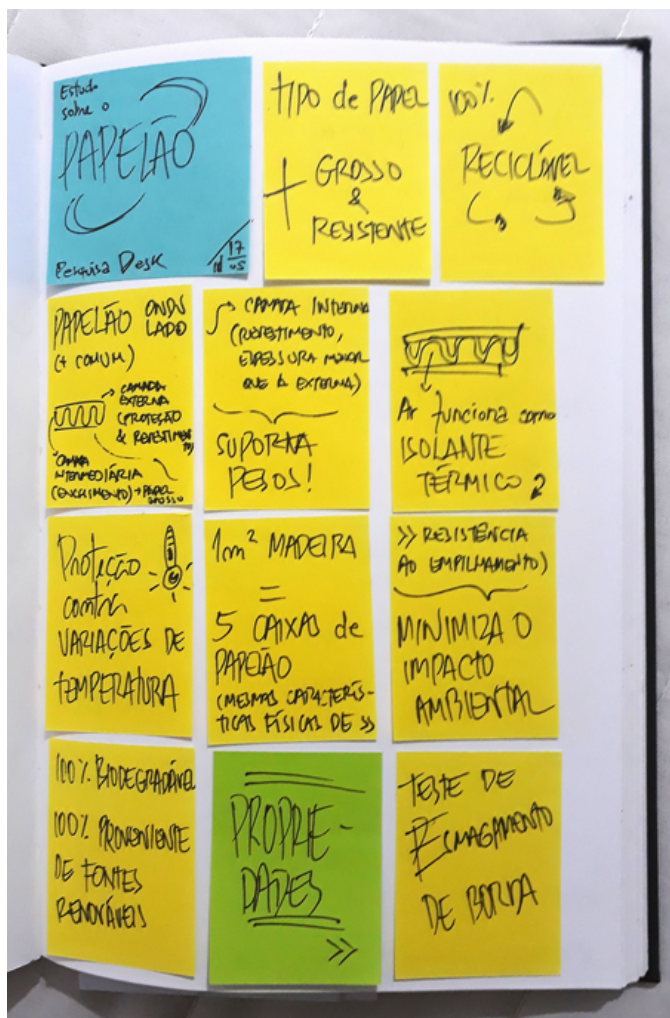 Estudo
sobre o
PAPELÃO
Pesquisa Desk
17
05
TIPO de PAPEL
+ GROSSO
&
RESISTENTE
100%
RECICLÁVEL
PAPELÃO ONDU
LADO
(+ COMUM)
CAMADA
EXTERNA
(PROTEÇÃO
& REVESTIMEN
TO)
CAMADA
INTERMEDIÁRIA
(ENCHIMENTO) → PAPEL
GROSSO
→ CAMADA INTERNA
(REVESTIMENTO,
ESPESSURA MAIOR
QUE A EXTERNA)
SUPORTA
PESOS!
Ar funciona como
ISOLANTE
TÉRMICO
Proteção
contra
VARIAÇÕES DE
TEMPERATURA
1m² MADEIRA
=
5 CAIXAS de
PAPELÃO
(MESMAS CARACTERÍS-
TICAS FÍSICAS DE >>
>> RESISTÊNCIA
AO EMPILHAMENTO)
MINIMIZA O
IMPACTO
AMBIENTAL
100% BIODEGRADÁVEL
100% PROVENIENTE
DE FONTES
RENOVÁVEIS
PROPRIE-
DADES
>>
TESTE DE
ESMAGAMENTO
DE BORDA